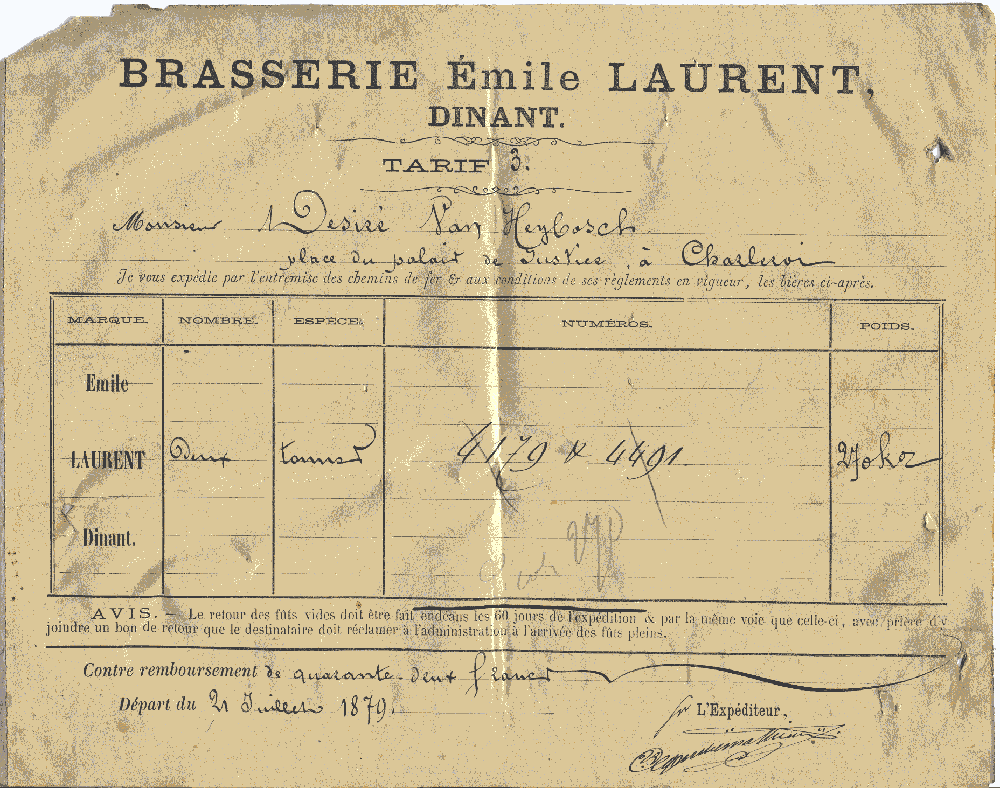 BRASSERIE Émile LAURENT,
DINANT.
TARIF 3.
Monsieur Desiré Van Heybosch
place du palais de Justice, à Charleroi
Je vous expédie par l'entremise des chemins de fer & aux conditions de ses règlements en vigueur, les bières ci-après.
MARQUE. NOMBRE. ESPÈCE. NUMÉROS. POIDS.
Emile
LAURENT Deux tonnes 4179 & 4491 270 ko
Dinant.
AVIS. — Le retour des fûts vides doit être fait endéans les 60 jours de l'expédition & par la même voie que celle-ci, avec prière d'y
joindre un bon de retour que le destinataire doit réclamer à l'administration à l'arrivée des fûts pleins.
Contre remboursement de quarante-deux francs
Départ du 21 Juillet 1879.
L'Expéditeur,